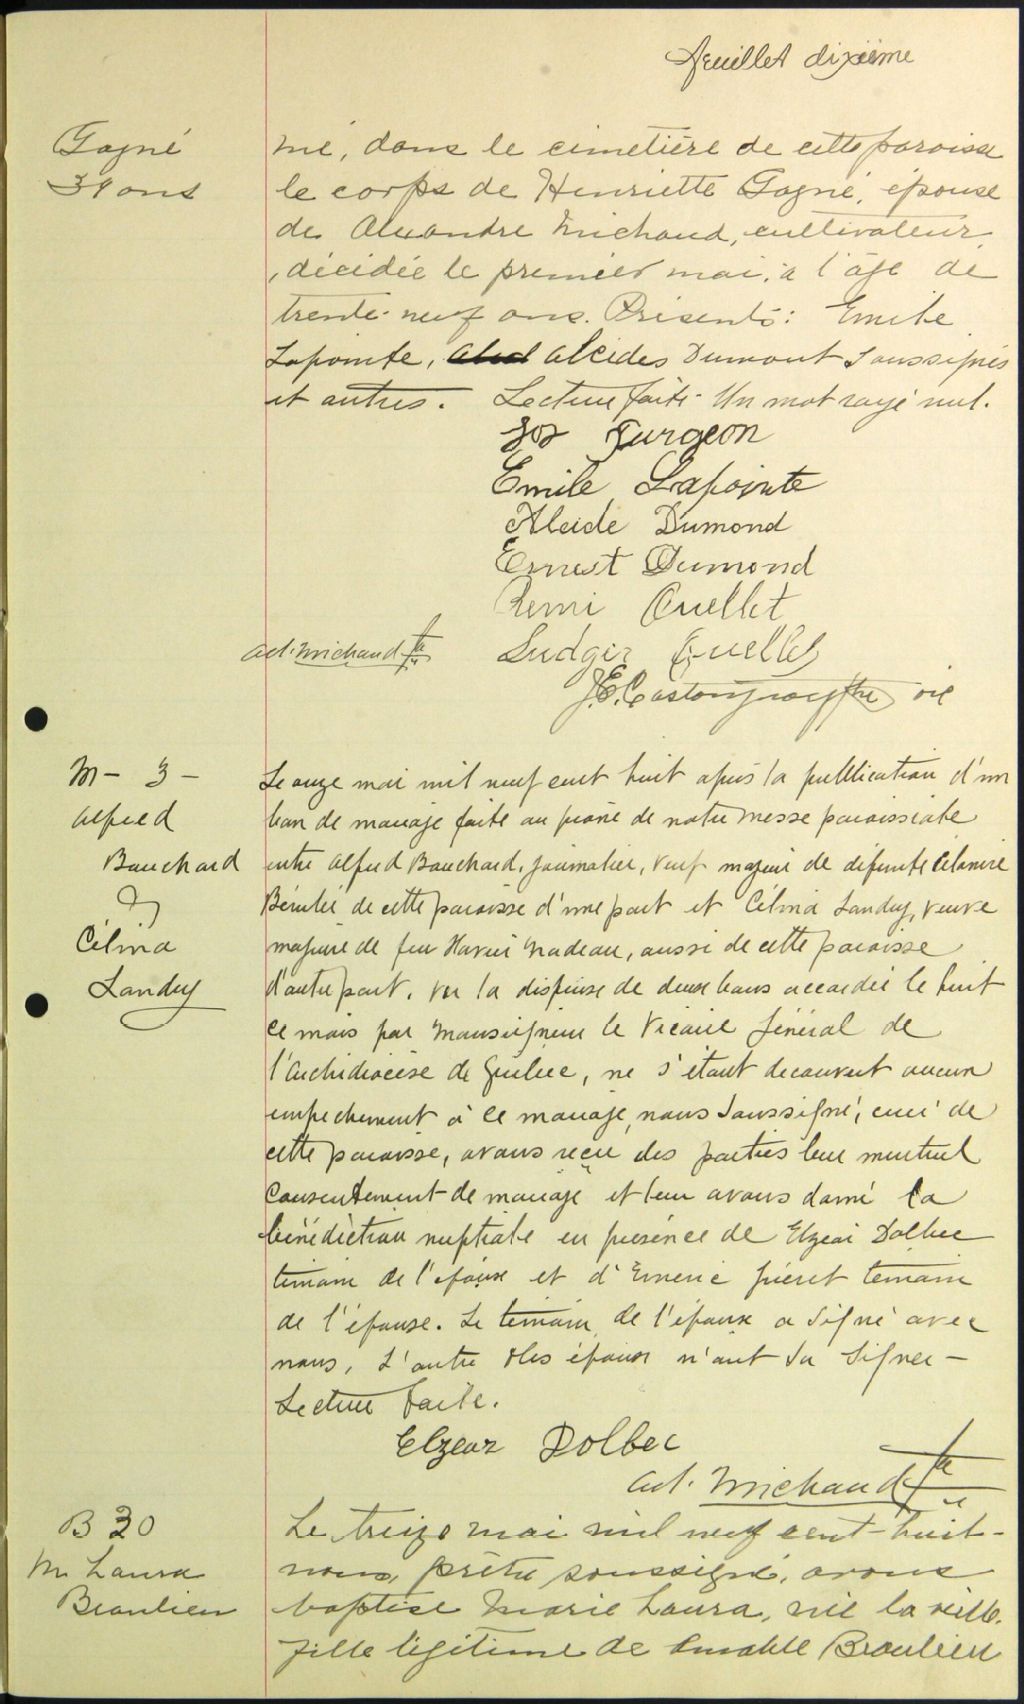 feuillet dixième
Gagné
39 ans
mé, dans le cimetière de cette paroisse
le corps de Henriette Gagné, épouse
de Alexandre Michaud, cultivateur,
, décédée le premier mai, à l'âge de
trente-neuf ans. Présents: Emile
Lapointe, Alcides Dumont soussignés
et autres. Lecture faite. Un mot rayé nul.
Jos Turgeon
Emile Lapointe
Alcide Dumond
Ernest Dumond
Remi Ouellet
Ludger Ouellet
Ad. Michaud ptre
J.E. Castonguay ptre vic
M - 3 -
Alfred
Bouchard
&
Célina
Landry
Le onze mai mil neuf cent huit après la publication d'un
ban de mariage faite au prône de notre messe paroissiale
entre Alfred Bouchard, journalier, veuf majeur de défunte
Bérubé de cette paroisse d'une part et Célina Landry, veuve
majeure de feu Nadeau, aussi de cette paroisse
d'autre part, vu la dispense de deux bans accordée le huit
ce mois par Monseigneur le Vicaire Général de
l'Archidiocèse de Québec, ne s'étant découvert aucun
empechement à ce mariage, nous soussigné, curé de
cette paroisse, avons reçu des parties leur mutuel
consentement de mariage et leur avons donné la
bénédiction nuptiale en présence de Elzear Dolbec
témoin de l'époux et d'Emerie témoin
de l'épouse. Le témoin de l'époux a signé avec
nous, L'autre & les époux n'ont su signer -
Lecture faite.
Elzear Dolbec
Ad. Michaud ptre
B 30
M. Laura
Beaulieu
Le treize mai mil neuf cent-huit-
nous, prêtre soussigné, avons
baptisé Marie Laura, née la veille.
fille légitime de Amable Beaulieu